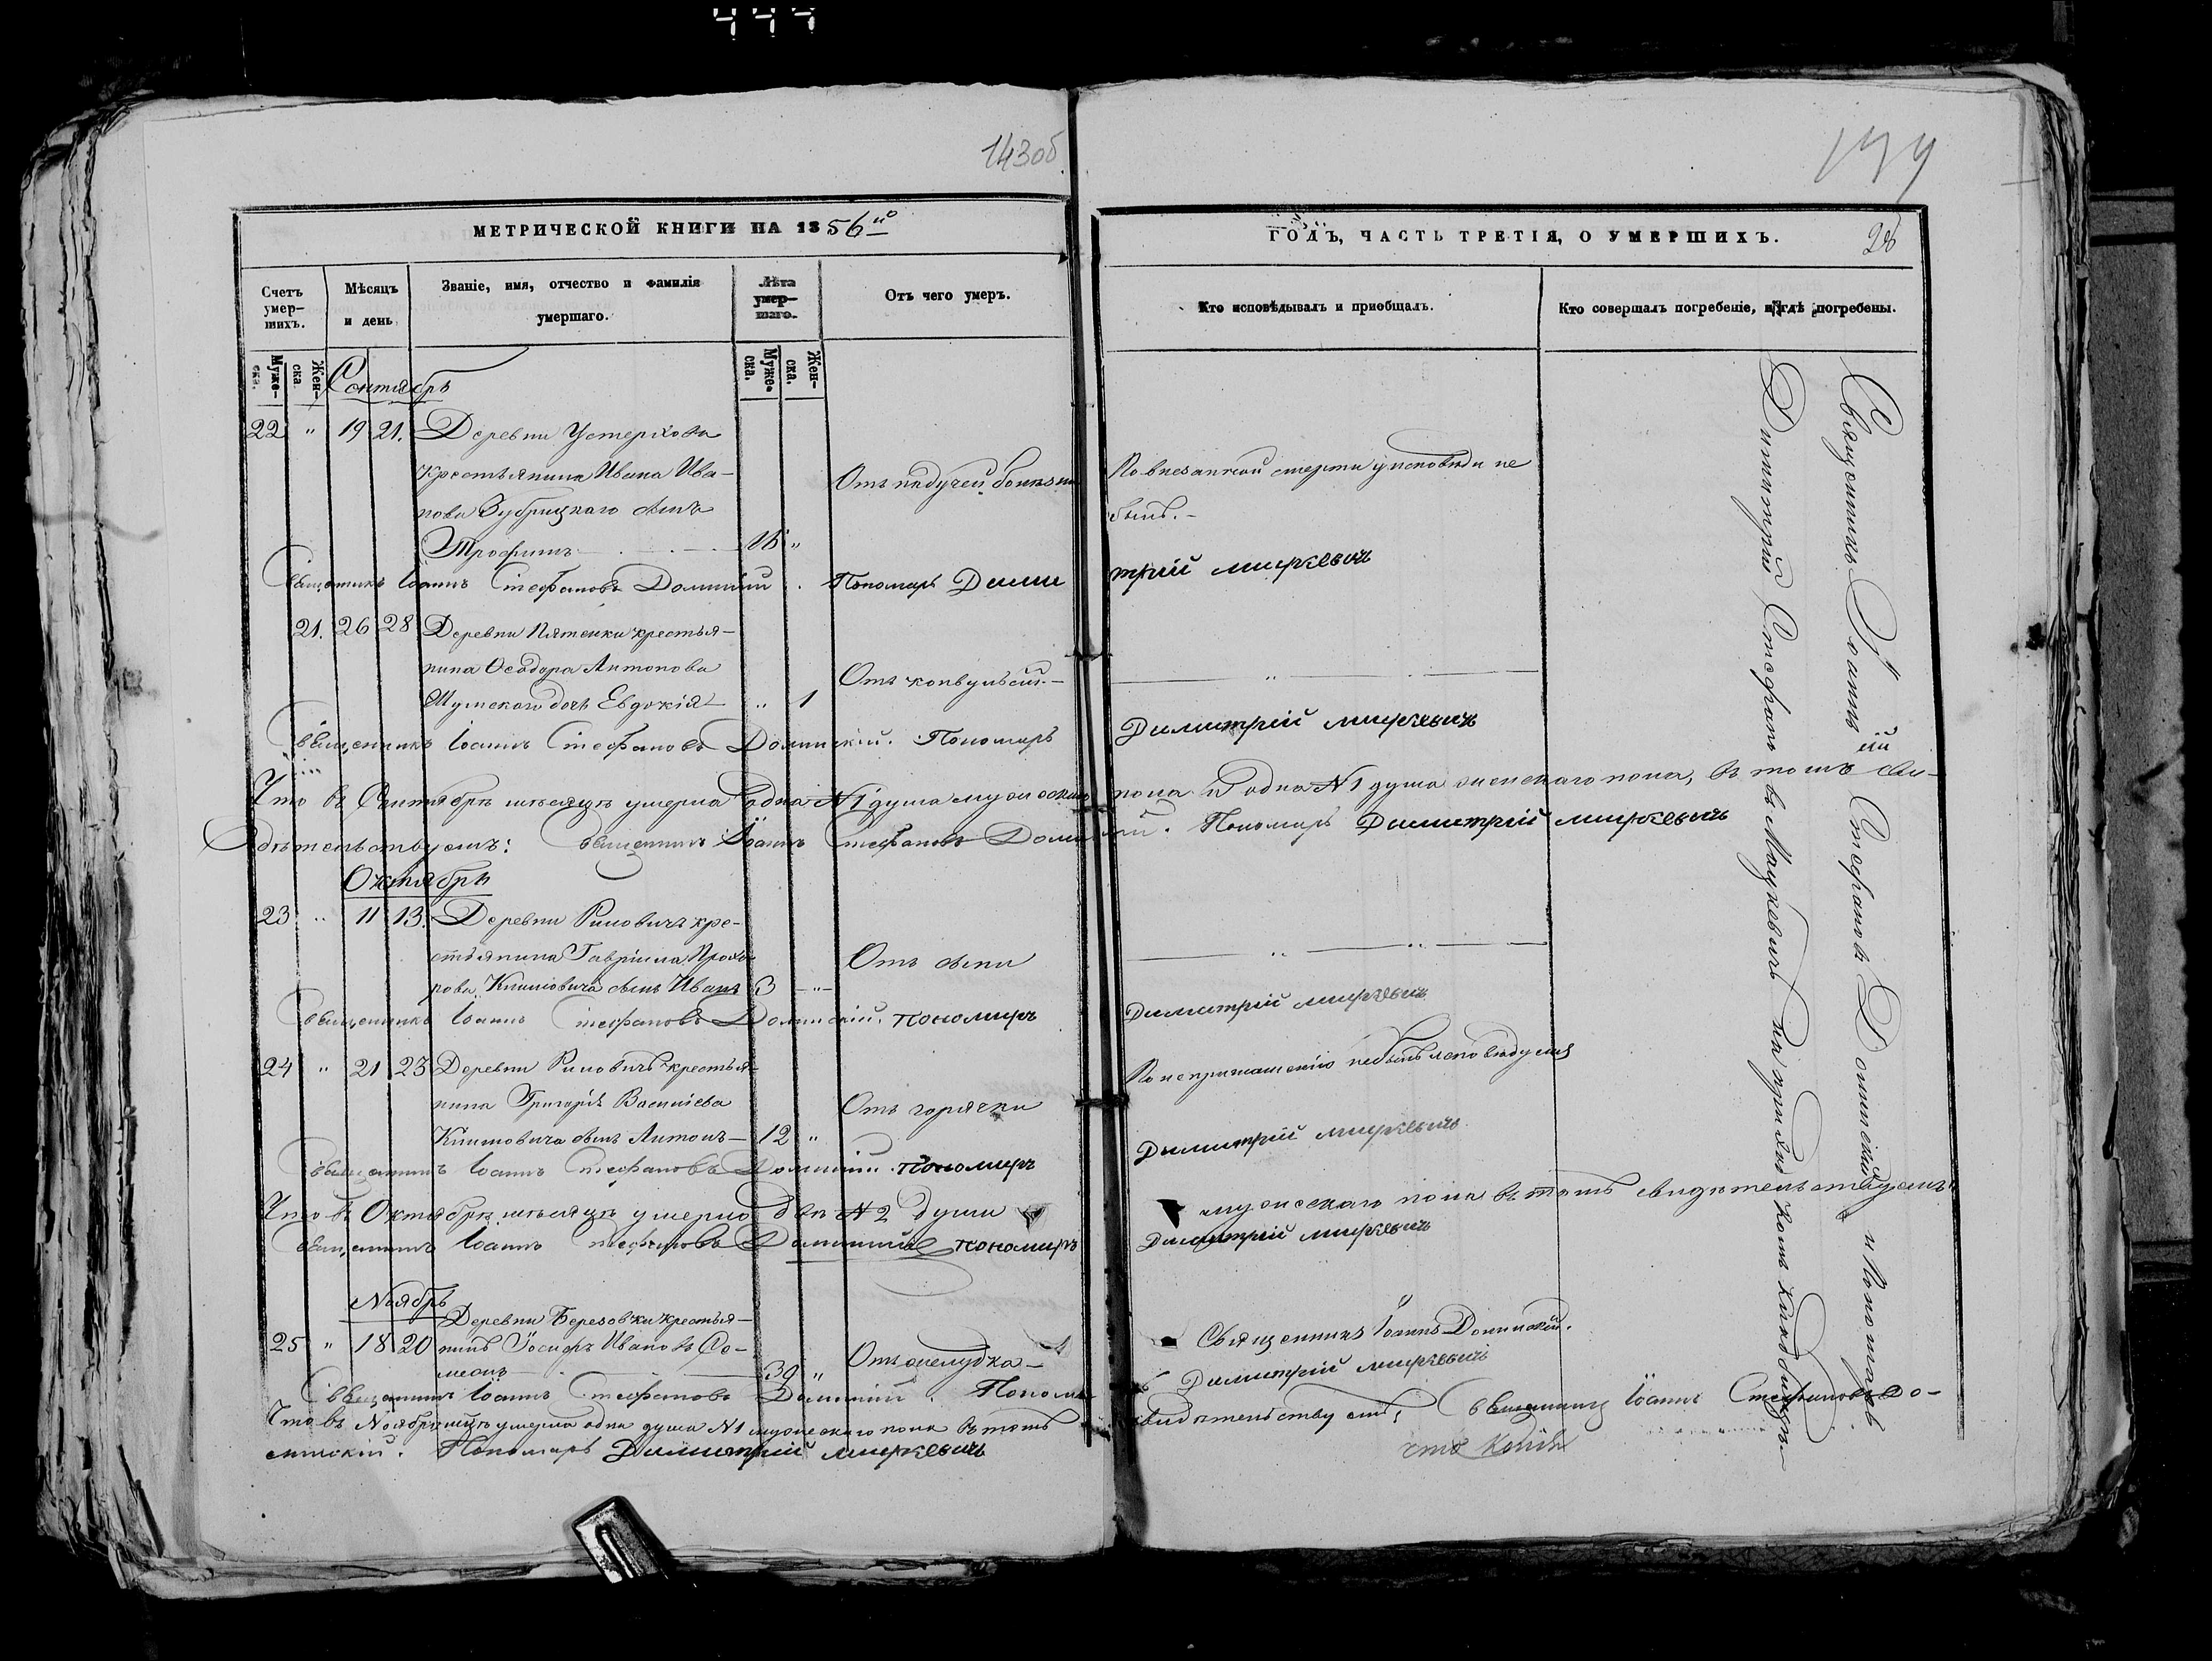 143об
144
МЕТРИЧЕСКОЙ КНИГИ НА 1856й
ГОДЪ, ЧАСТЬ ТРЕТІЯ, О УМЕРШИХЪ.
28
Счетъ умер-шихъ.
Мѣсяцъ и день
Званіе, имя, отчество и фамилія умершаго.
Лѣта умер-шаго.
Отъ чего умеръ.
Кто исповѣдывалъ и пріобщалъ.
Кто совершалъ погребеніе, и гдѣ погребены.
Муже-ска.
Жен-ска
Муже-ска.
Жен-ска.
Сентябрь
22 " 19 21. Деревни Устерхова
Крестьянина Ивана Ива-
нова Зубрицкаго сынъ
Трофимъ 18 "
Отъ падучей болѣзни
По внезапной смерти у исповѣди не
былъ.-
Священникъ Іоаннъ Стефановъ Долинскій. Пономарь Димитрій Мицкевичъ
21. 26 28 Деревни Пятенки крестья-
нина Ѳеодора Антонова
дочь Евдокія " 1
Отъ конвульсій.-
Священникъ Іоаннъ Стефановъ Долинскій. Пономарь Димитрій Мицкевичъ
Что въ Сентябрѣ мѣсяцѣ умерла одна № 1 душа мужескаго пола и одна № 1 душа женскаго пола, въ томъ сви-
дѣтельствуемъ: Священникъ Іоаннъ Стефановъ Долинскій. Пономарь Димитрій Мицкевичъ
Октябрь
23 " 11 13. Деревни Риловичъ кре-
стьянина Гавріила Прохо-
рова Климовича сынъ Иванъ 3 "
Отъ оспы
Священникъ Іоаннъ Стефановъ Долинскій. Пономарь Димитрій Мицкевичъ
24 " 21 23 Деревни Риловичъ крестья-
нина Григорія Василіева
Климовича сынъ Антонъ 12 "
Отъ горячки
По неприглашенію небылъ исповѣдуемъ
Священникъ Іоаннъ Стефановъ Долинскій. Пономарь Димитрій Мицкевичъ
Что въ Октябрѣ мѣсяцѣ умерло двѣ № 2 души мужескаго пола въ томъ свидѣтельствуемъ
Священникъ Іоаннъ Стефановъ Долинскій Пономарь Димитрій Мицкевичъ
Ноябрь
Деревни Березовки крестья-
25 " 18 20 нинъ Іосифъ Ивановъ Со-
30 "
Отъ желудка
Священникъ Іоаннъ Долинскій.
Священникъ Іоаннъ Стефановъ Долинскій. Пономарь Димитрій Мицкевичъ
Что въ Ноябрѣ мѣсяцѣ умерла одна душа № 1 мужескаго пола въ томъ свидѣтельствуемъ: Священникъ Іоаннъ Стефановъ До-
линскій. Пономарь Димитрій Мицкевичъ
Священникъ Іоаннъ Стефановъ Долинскій и Пономарь
Димитрій Стефановъ Мицкевичъ на приходскомъ кладбищѣ